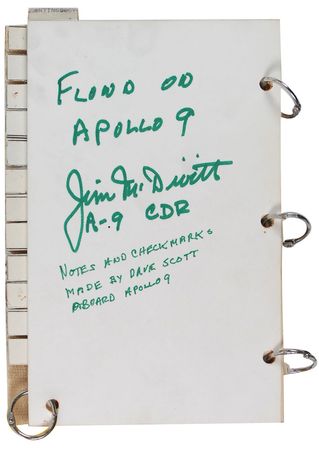 FLOWN ON
APOLLO 9
Jim McDivitt
A-9 CDR
NOTES AND CHECKMARKS
MADE BY DAVE SCOTT
ABOARD APOLLO 9